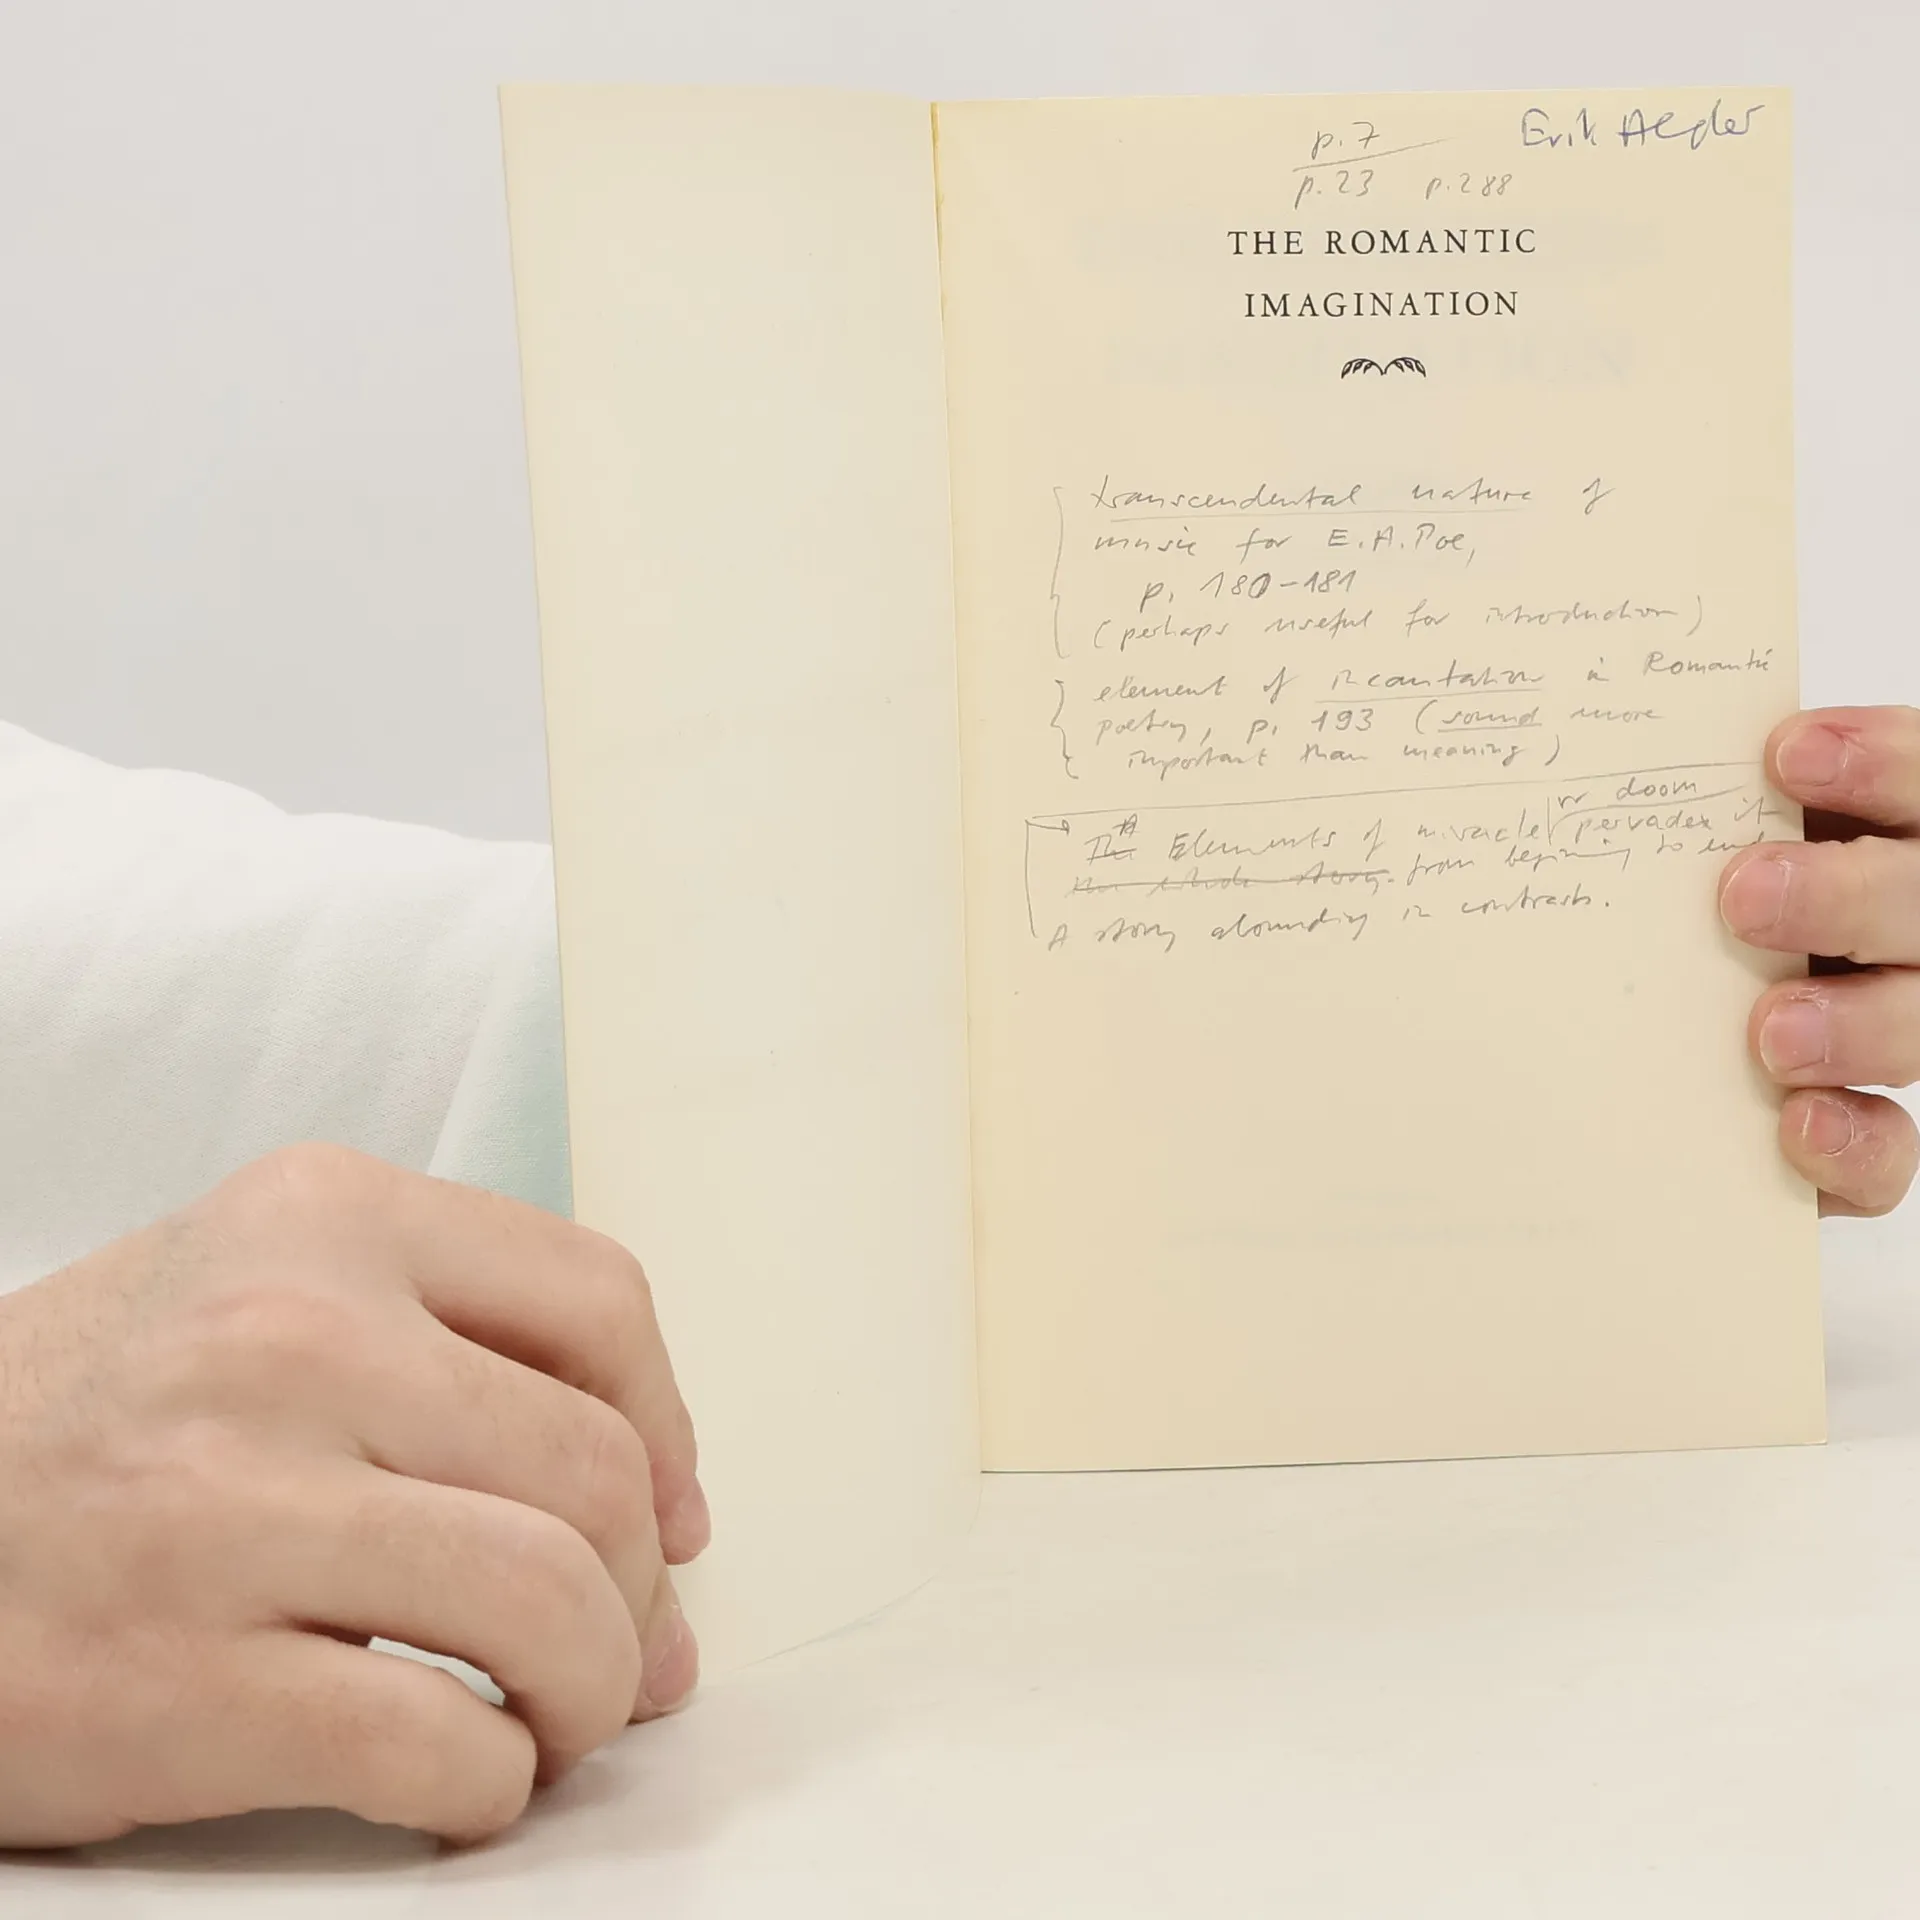 p. 7
Erik
p. 23 p. 288
THE ROMANTIC
IMAGINATION
transcendental nature of
music for E. A. Poe,
p. 180-181
(perhaps useful for introduction)
element of incantation in Romantic
poetry, p. 193 (sound more
important than meaning)
or doom
The Elements of miracle pervades it
the whole story. from begining to end
A story abounding in contrasts.